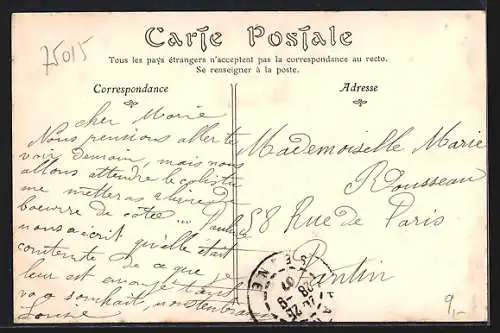 75015
Carte Postale
Tous les pays étrangers n'acceptent pas la correspondance au recto.
Se renseigner à la poste.
Correspondance
Adresse
cher Marie
Nous pensions aller te
voir demain, mais nous
allons attendre le colis tu
me metteras 2 livre de
boeurre de côtée ...
nous a écrit qu'elle était
contente de ce que
leur est
Louise
Mademoiselle Marie
Rousseau
58 Rue de Paris
Pantin
SEINE
9,-